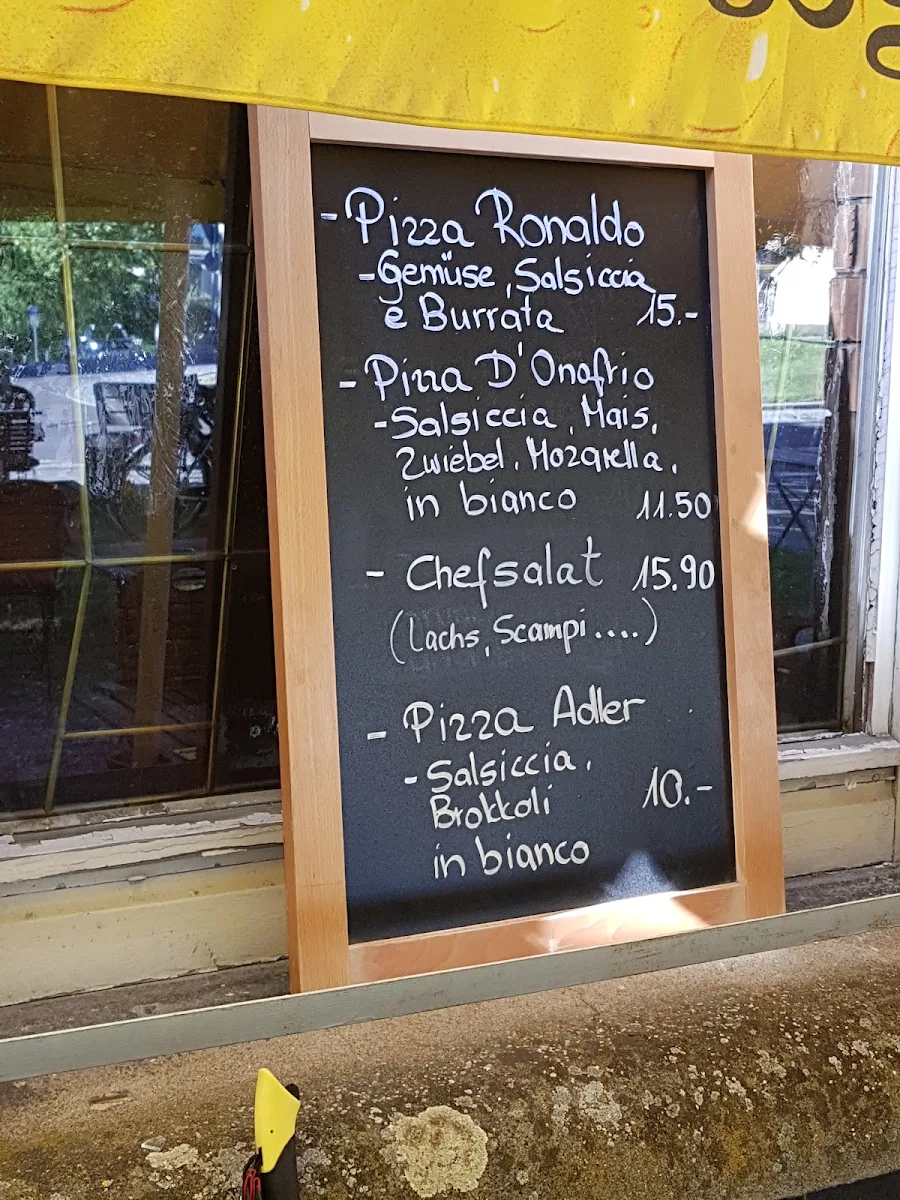 - Pizza Ronaldo
- Gemüse, Salsiccia
e Burrata 15.-
- Pizza D'Onofrio
- Salsiccia, Mais,
Zwiebel, Mozarella,
in bianco 11.50
- Chefsalat 15.90
(Lachs, Scampi....)
- Pizza Adler
- Salsiccia,
Brokkoli 10.-
in bianco